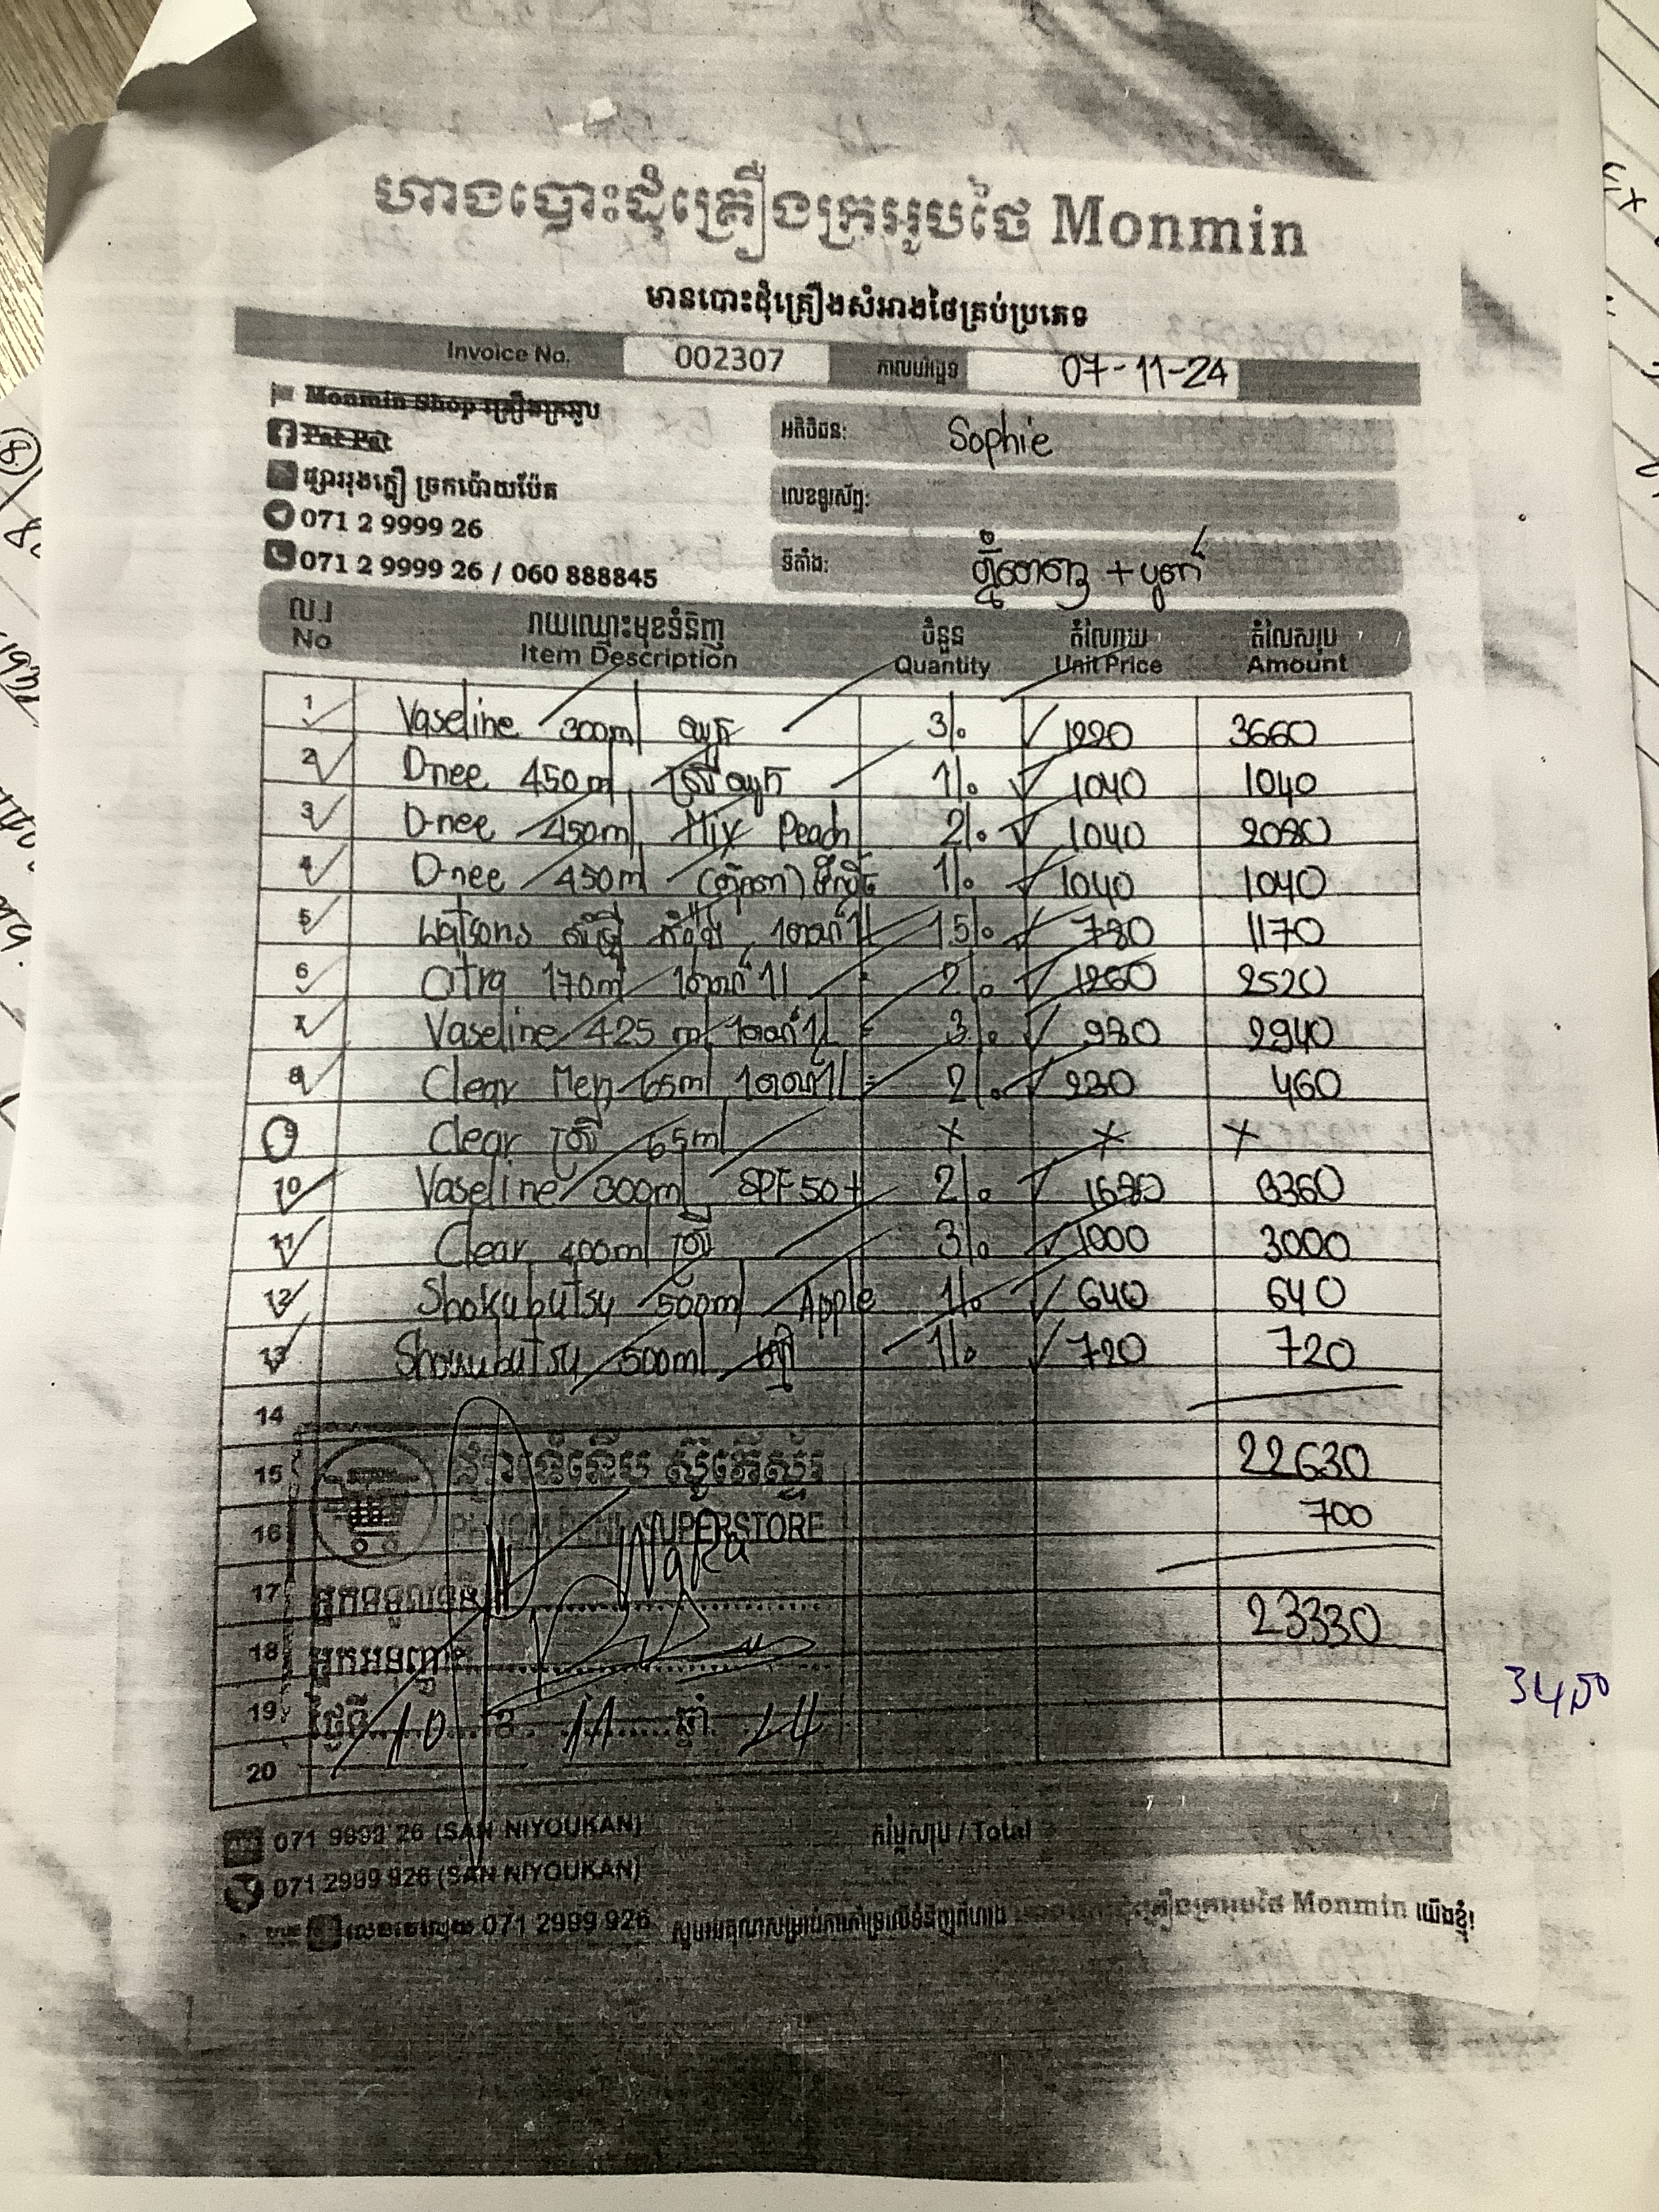 ហាងបោះដុំគ្រឿងក្រអូបថៃ Monmin
មានបោះដុំគ្រឿងសំអាងថៃគ្រប់ប្រភេទ
Invoice No. 002307 កាលបរិច្ឆេទ 07-11-24
Monmin Shop គ្រឿងក្រអូប
Pat Pat
ផ្សាររុងក្លឿ ច្រកប៉ោយប៉ែត
071 2 9999 26
071 2 9999 26 / 060 888845
អតិថិជន: Sophie
លេខទូរស័ព្ទ:
ទីតាំង: ភ្នំពេញ +
ល.រ រាយឈ្មោះមុខទំនិញ ចំនួន តំលៃរាយ តំលៃសរុប
No Item Description Quantity Unit Price Amount
1 Vaseline 300ml 3/. 1220 3660
2 Dnee 450ml 1/. 1040 1040
3 D-nee 450ml Mix Peach 2/. 1040 2080
4 D-nee 450ml 1/. 1040 1040
5 Watsons 1.5/. 780 1170
6 Citra 170ml 2/. 1260 2520
7 Vaseline 425 ml 3/. 980 2940
8 Clear Men 65ml 2/. 230 460
9 Clear ស្រី 65ml x x x
10 Vaseline 300ml SPF50+ 2/. 1680 3360
11 Clear 400ml ស្រី 3/. 1000 3000
12 Shokubutsu 500ml Apple 1/. 640 640
13 Shokubutsu 500ml 1/. 720 720
14
15 22630
16 SUPERSTORE 700
17 អ្នកទទួល 23330
18 អ្នកអនុញ្ញាត
19 ថ្ងៃទី 10 ខែ 11 ឆ្នាំ 24
20
3450
071 9999 26 (SAN NIYOUKAN)
071 2999 926 (SAN NIYOUKAN)
071 2999 926
តម្លៃសរុប / Total
Monmin យើងខ្ញុំ!